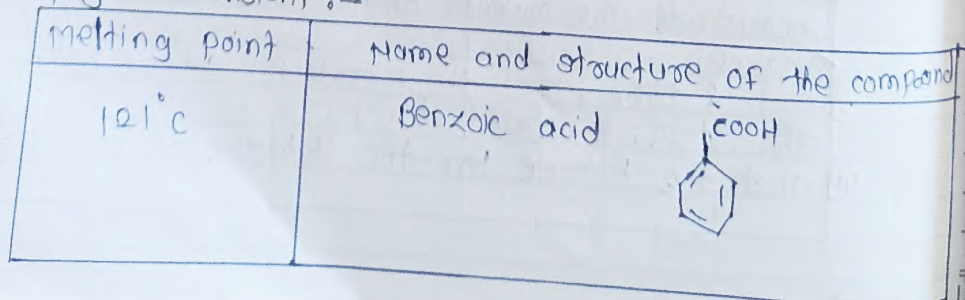 melting point
Name and structure of the compound
121°C
Benzoic acid
COOH